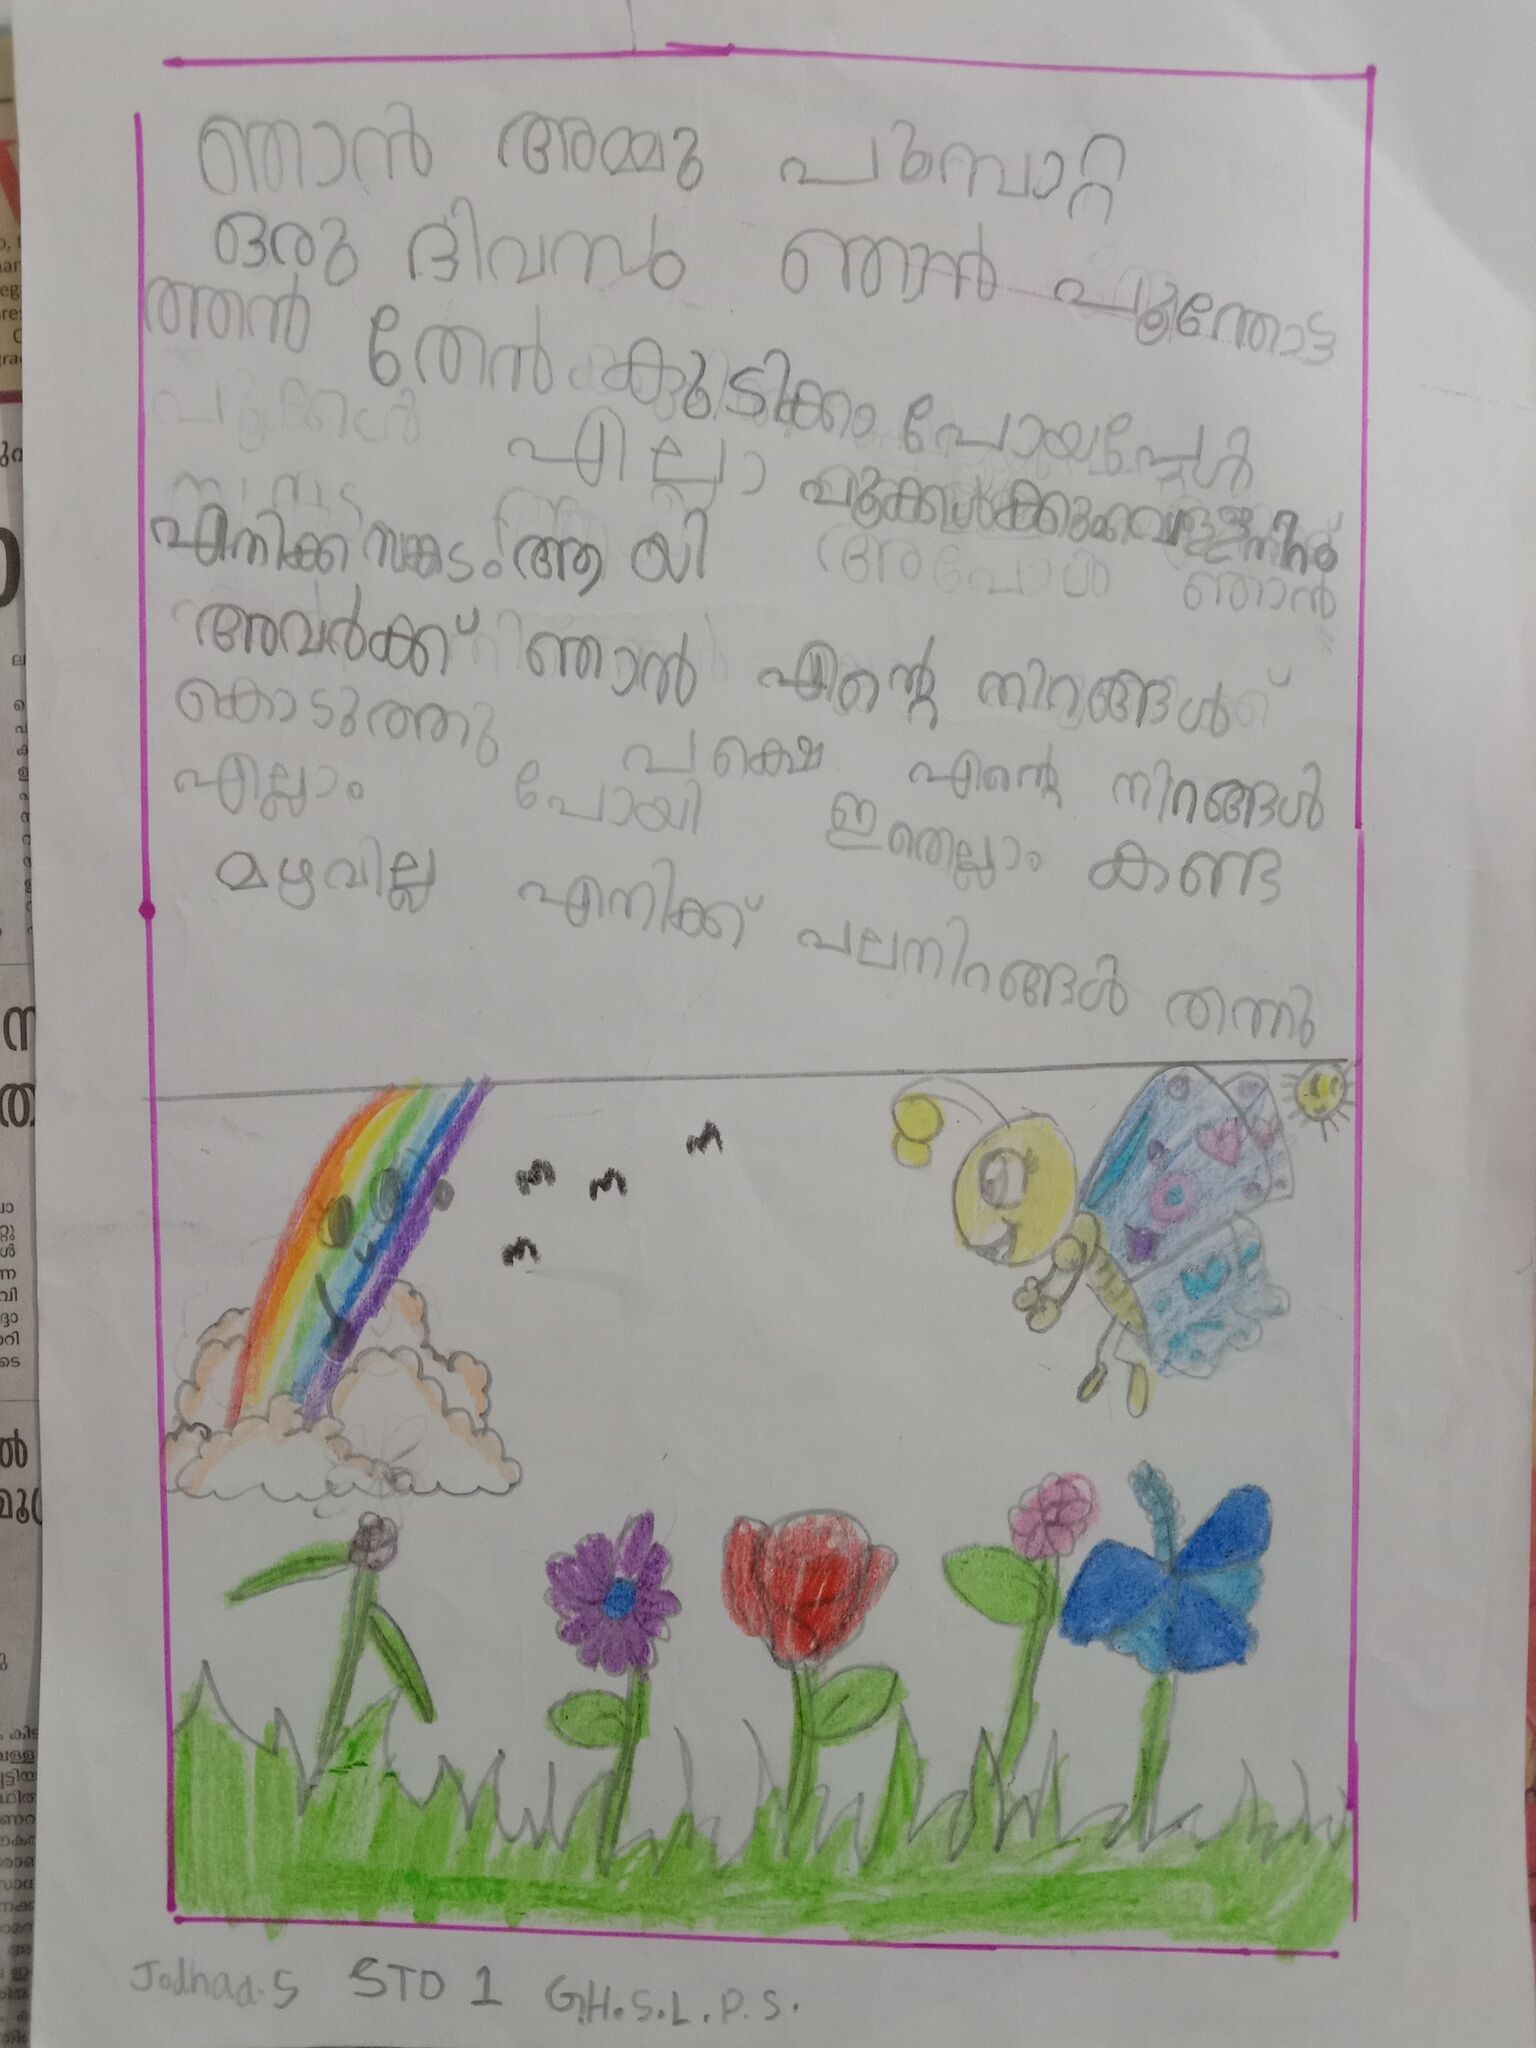 ഞാൻ അമ്മു പൂമ്പാറ്റ
ഒരു ദിവസം ഞാൻ പൂന്തോട്ട
ത്തൻ തേൻ കുടിക്കാ പോയപ്പേൾ
എല്ലാ പൂക്കൾക്കും വെള്ളനിറം
എനിക്ക് സങ്കടം ആ യി അപോൾ ഞാൻ
അവർക്ക് ഞാൻ എന്റെ നിറങ്ങൾ
കൊടുത്തു പക്ഷെ എന്റെ നിറങ്ങൾ
എല്ലാം പോയി ഇതെല്ലാം കണ്ട
മഴവില്ല എനിക്ക് പലനിറങ്ങൾ തന്നു
Jodhad.S STD 1 G.H.S.L.P.S.